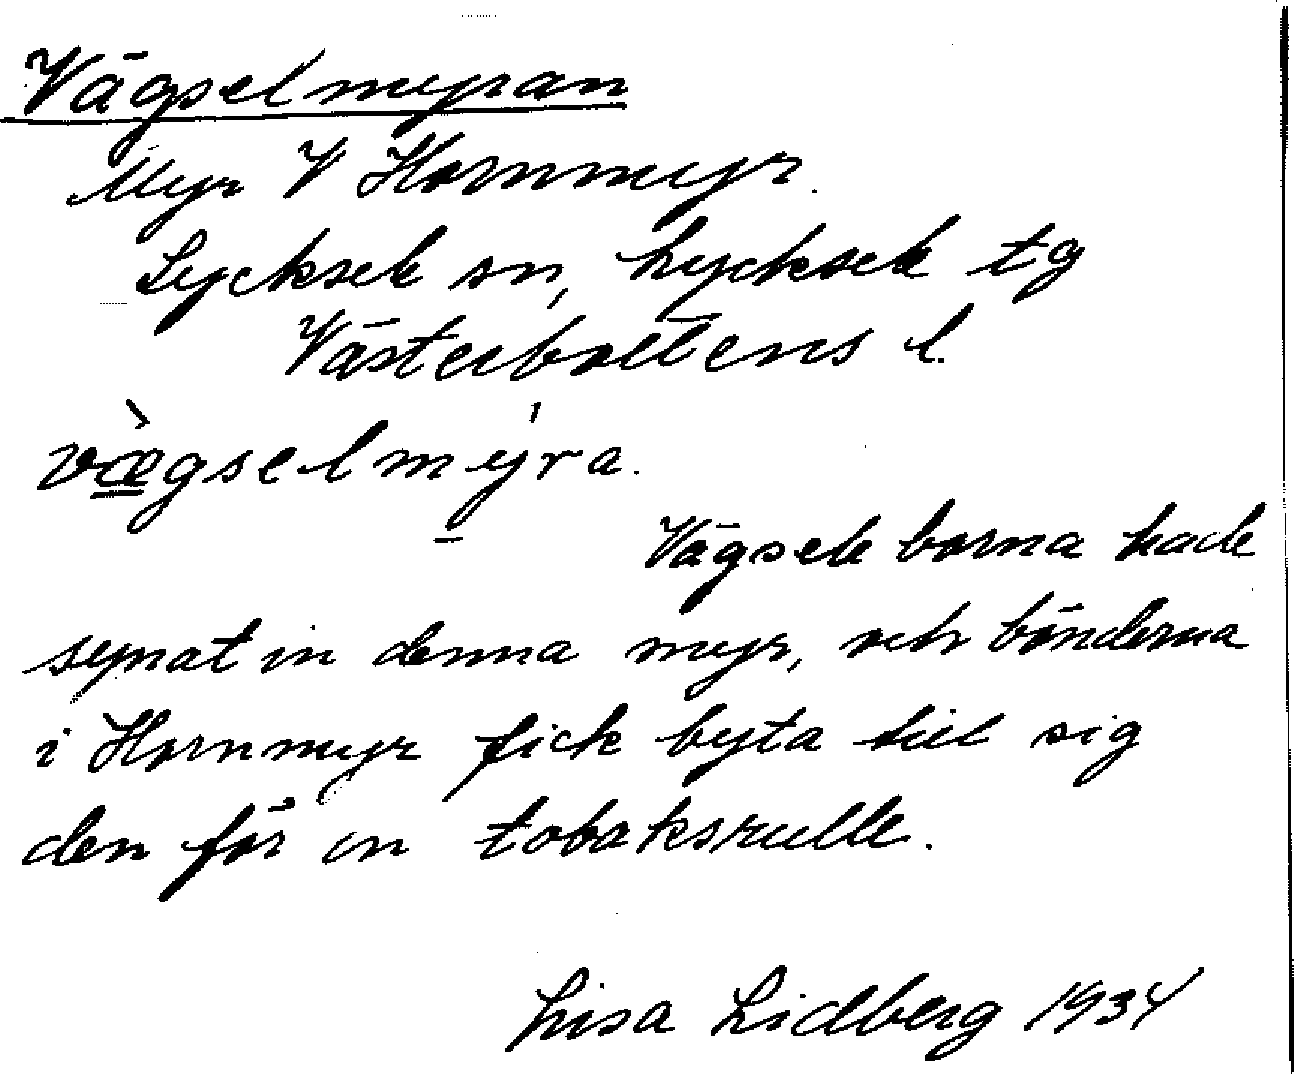 Vägselmyran
Myr V Hornmyr.
Lycksele sn, Lycksele tg
Västerbottens l.
vægselmyra.
Vägseleborna hade
synat in denna myr, och bönderna
i Hornmyr fick byta till sig
den för en tobaksrulle.
Lisa Lidberg 1934